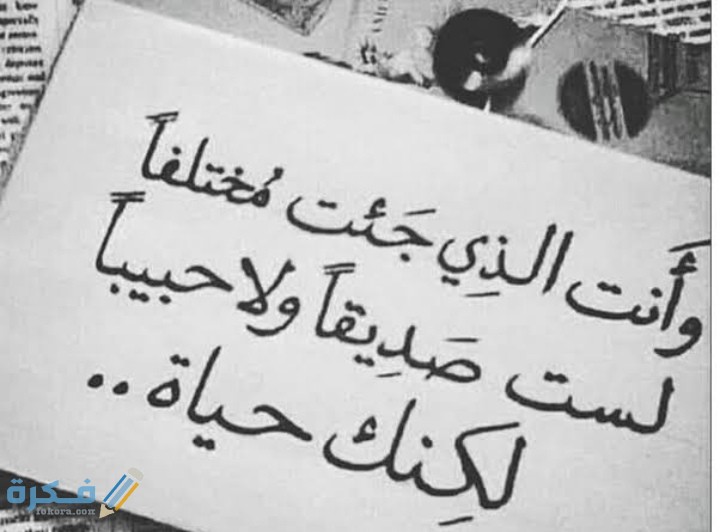 وأَنت الذِي جَئت مُختلفاً
لست صَدِيقاً ولا حبيباً
لكِنك حياة ..
فكرة
fokora.com